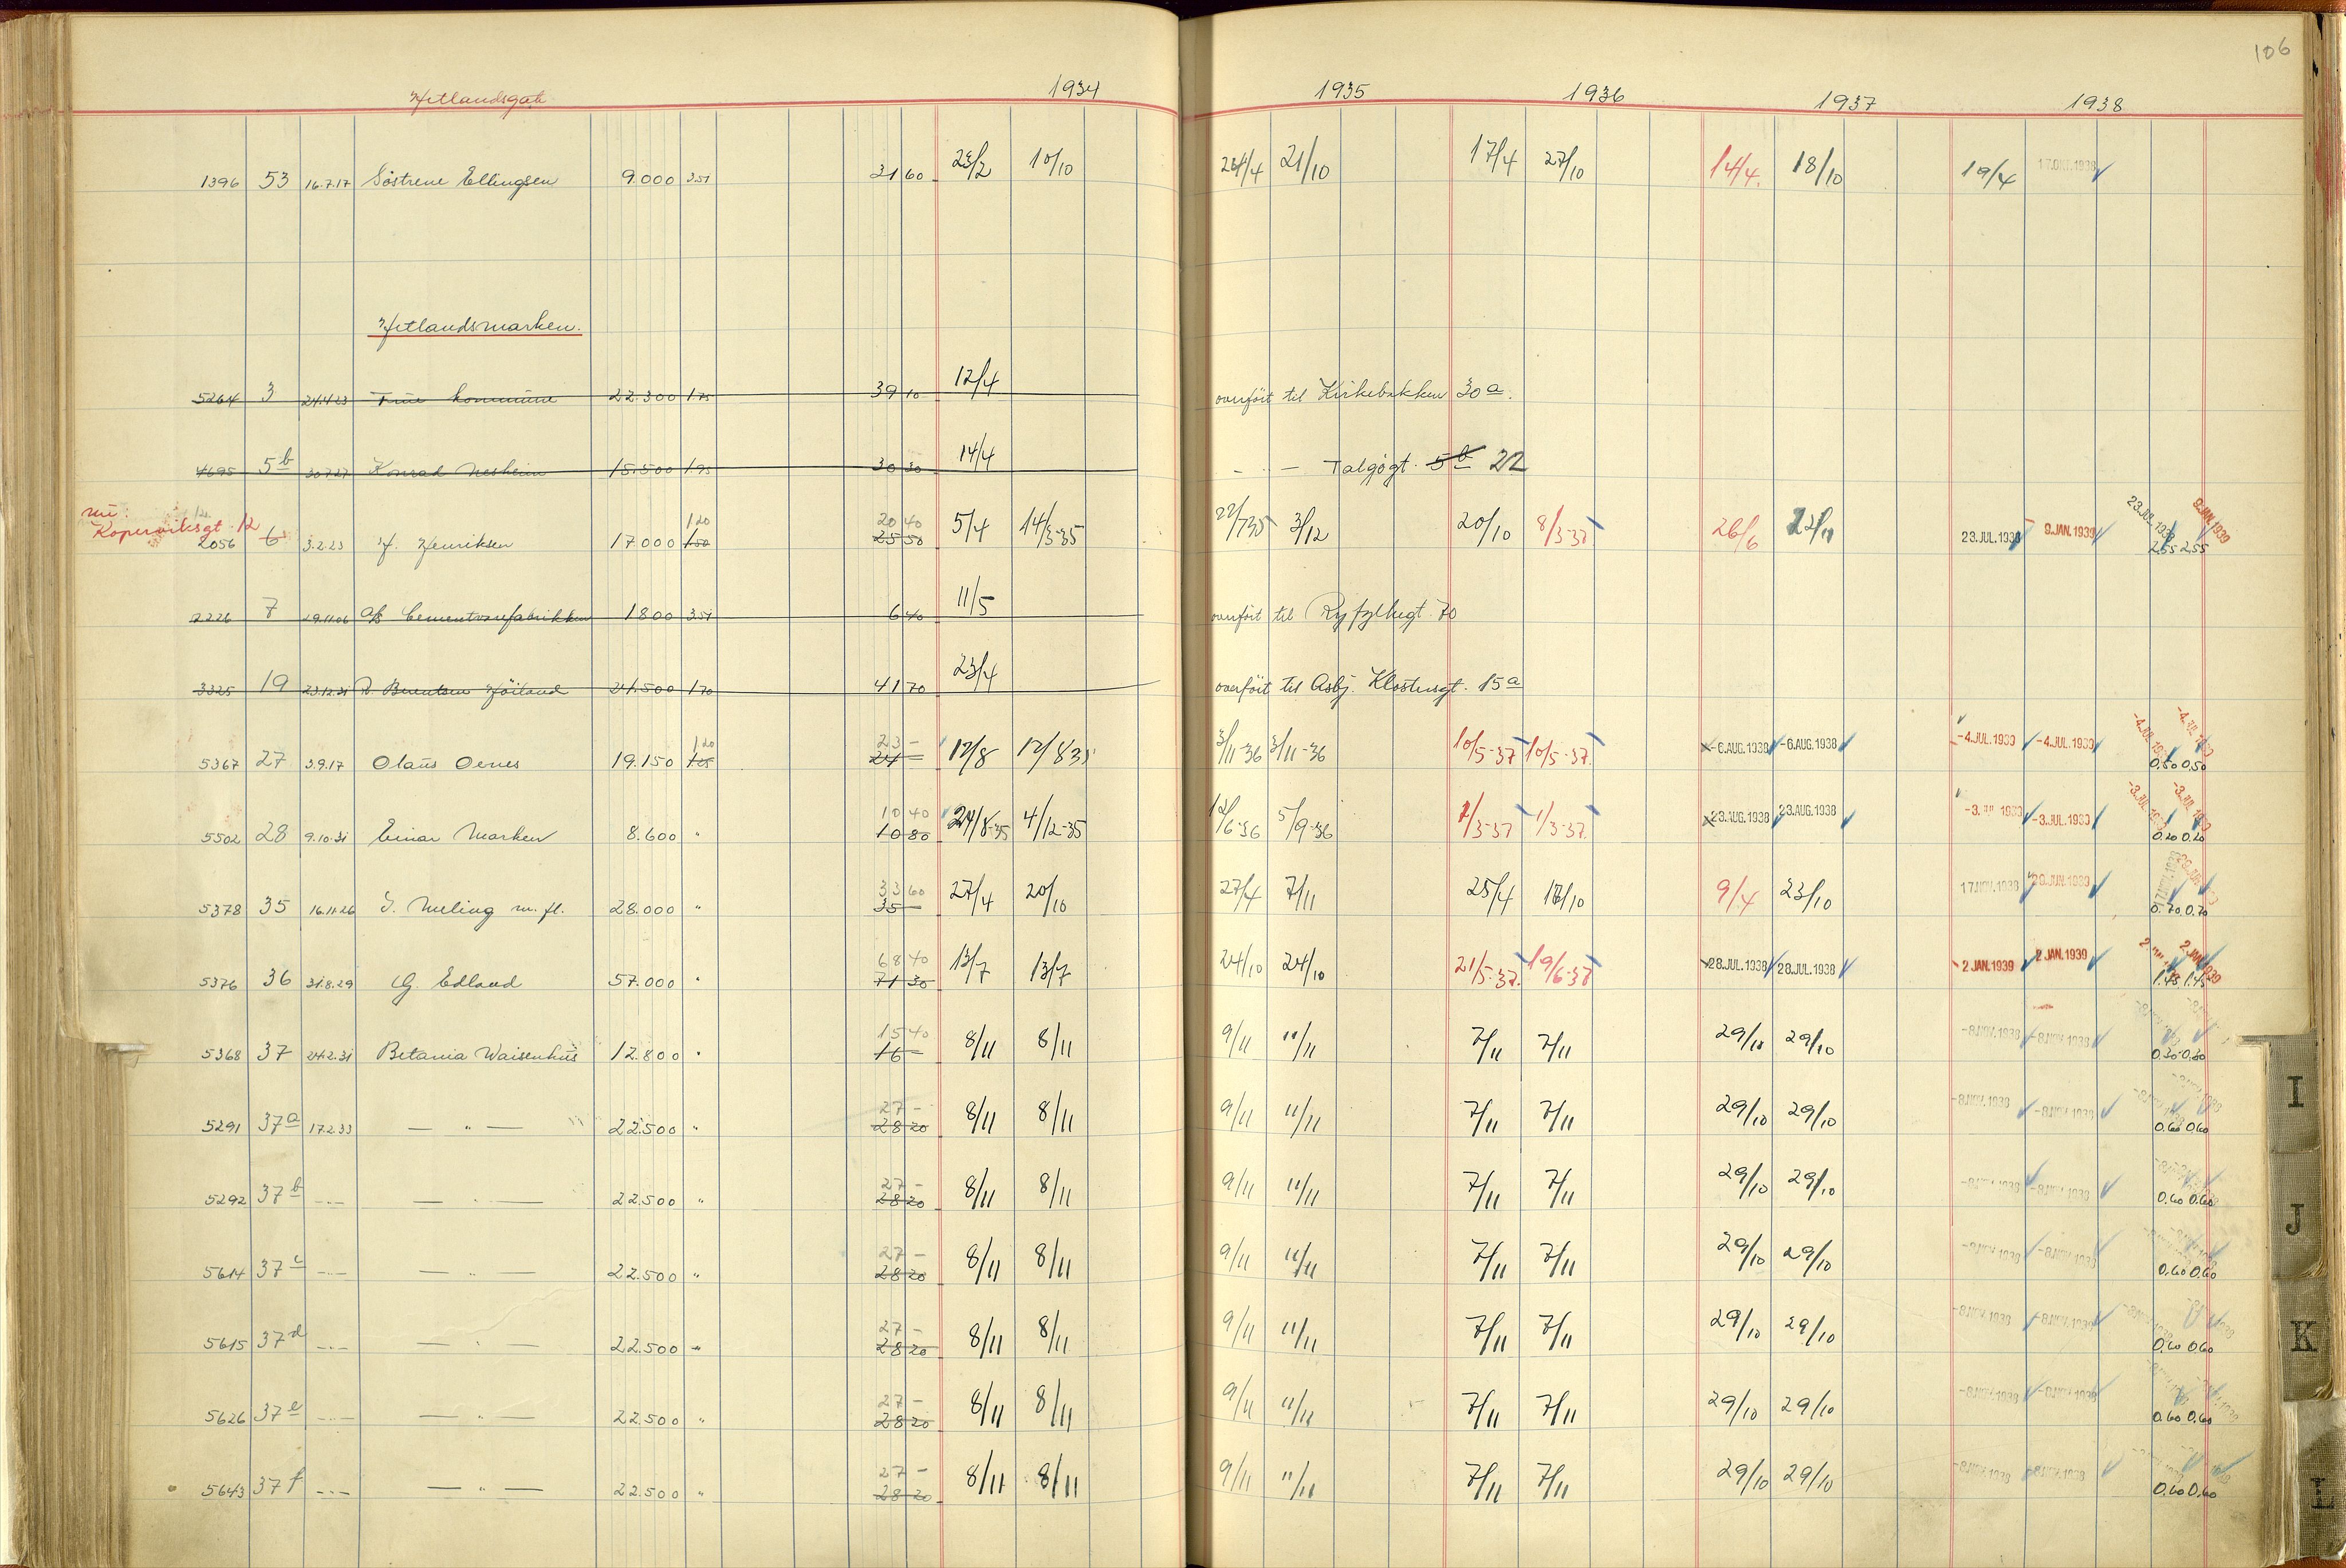 106
Hetlandsgata 1934 1935 1936 1937 1938
1396 53 16.7.17 Søstrene Ellingsen 9.000 31 60 23/2 10/10 24/4 21/10 17/4 27/10 14/4. 18/10 19/4 17.OKT.1938
Hetlandsmarken.
5264 3 24.4.23 Frue kommune 22.300 1.75 39 10 12/4 overført til Kirkebakken 30a.
4695 5b 30.7.27 Konrad Nesheim 15.500 1.95 30 30 14/4 — " — Talgøgt. 5b 22
nu: Koperviksgt. 12
1.20 20 40
2056 6 3.2.23 H. Henriksen 17.000 1.50 25 50 5/4 14/3-35 22/7 35 3/12 20/10 8/3-37 26/6 22/11 23.JUL.1938 9.JAN.1939 23.JUL.1938 9.JAN.1939 2.55 2.55
2226 7 29.11.06 A/S Cementvarefabrikken 1800 3.51 6 40 11/5 overført til Ryfylkegt. 70
3325 19 23.12.31 B. Berentsen Høiland 24.500 1.70 41 70 23/4 overført til Asbj. Klostersgt. 15a
1.20 23 -
5367 27 3.9.17 Olaus Oevnes 19.150 1.25 24 — 12/8 12/8 35 3/11-36 3/11-36 10/5-37 10/5-37. -6.AUG.1938 -6.AUG.1938 -4.JUL.1939 -4.JUL.1939 -4.JUL.1939 -4.JUL.1939 0.50 0.50
10 40
5502 28 9.10.31 Einar Marken 8.600 " 10 80 24/8-35 4/12-35 12/6-36 5/9-36 1/3-37 1/3-37. 23.AUG.1938 23.AUG.1938 -3.JUL.1939 -3.JUL.1939 -3.JUL.1939 -3.JUL.1939 0.20 0.20
33 60
5378 35 16.11.26 I. Meling m. fl. 28.000 " 35 — 27/4 20/10 27/4 7/11 25/4 17/10 9/4 23/10 17.NOV.1938 17.NOV.1938 0.70 0.70
68 40
5376 36 31.8.29 G. Edland 57.000 " 71 30 13/7 13/7 24/10 24/10 21/5-37. 19/6-37 28.JUL.1938 28.JUL.1938 2.JAN.1939 2.JAN.1939 2.JAN.1939 1.45 1.45
15 40
5368 37 24.2.31 Betania Waisenhus 12.800 " 16 — 8/11 8/11 9/11 11/11 7/11 7/11 29/10 29/10 -8.NOV.1938 -8.NOV.1938 0.30 0.30
27 -
5291 37a 17.2.33 — " — 22.500 " 28 20 8/11 8/11 9/11 11/11 7/11 7/11 29/10 29/10 -8.NOV.1938 -8.NOV.1938 0.60 0.60
27 -
5292 37b — " — — " — 22.500 " 28 20 8/11 8/11 9/11 11/11 7/11 7/11 29/10 29/10 -8.NOV.1938 -8.NOV.1938 0.60 0.60
27 -
5614 37c — " — — " — 22.500 " 28 20 8/11 8/11 9/11 11/11 7/11 7/11 29/10 29/10 -8.NOV.1938 -8.NOV.1938 0.60 0.60
27 -
5615 37d — " — — " — 22.500 " 28 20 8/11 8/11 9/11 11/11 7/11 7/11 29/10 29/10 -8.NOV.1938 -8.NOV.1938 0.60 0.60
27 -
5626 37e — " — — " — 22.500 " 28 20 8/11 8/11 9/11 11/11 7/11 7/11 29/10 29/10 -8.NOV.1938 -8.NOV.1938 0.60 0.60
27 -
5643 37f — " — — " — 22.500 " 28 20 8/11 8/11 9/11 11/11 7/11 7/11 29/10 29/10 -8.NOV.1938 -8.NOV.1938 0.60 0.60
I
J
K
L